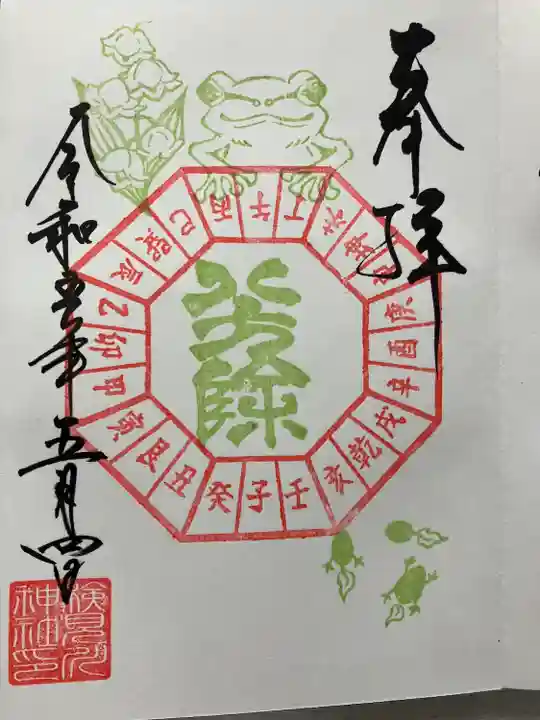 奉拝
八方除
午
丁
未
坤
申
庚
酉
辛
戌
乾
亥
壬
子
癸
丑
艮
寅
甲
卯
乙
辰
巽
巳
丙
令和五年五月四日
検見川神社印